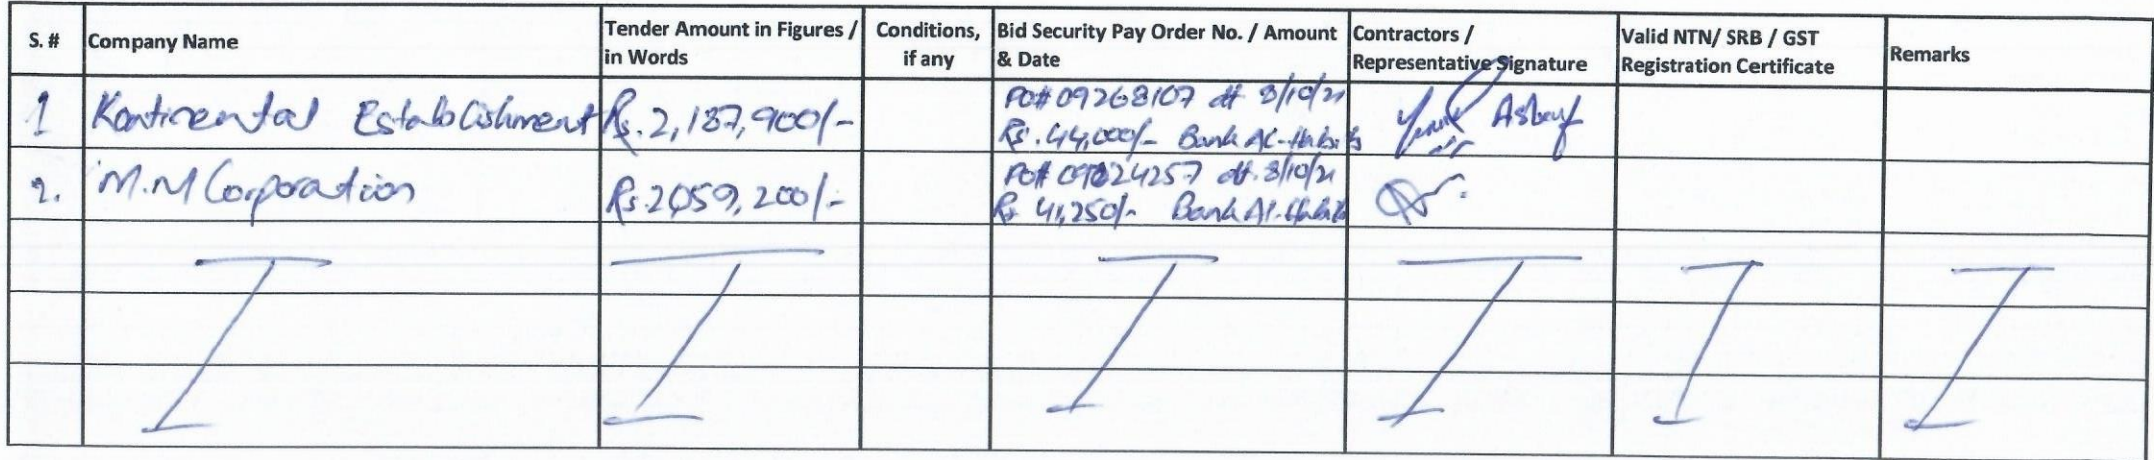 S. # Company Name Tender Amount in Figures / in Words Conditions, if any Bid Security Pay Order No. / Amount & Date Contractors / Representative Signature Valid NTN/ SRB / GST Registration Certificate Remarks
1 Kontinental Establishment Rs. 2,137,900/- PO# 09268107 dt 8/10/21
Rs. 44,000/- Bank Al-Habib Asharf
2. M.M Corporation Rs. 2,059,200/- PO# dt. 8/10/21
Rs. 41,250/- Bank Al-Habib